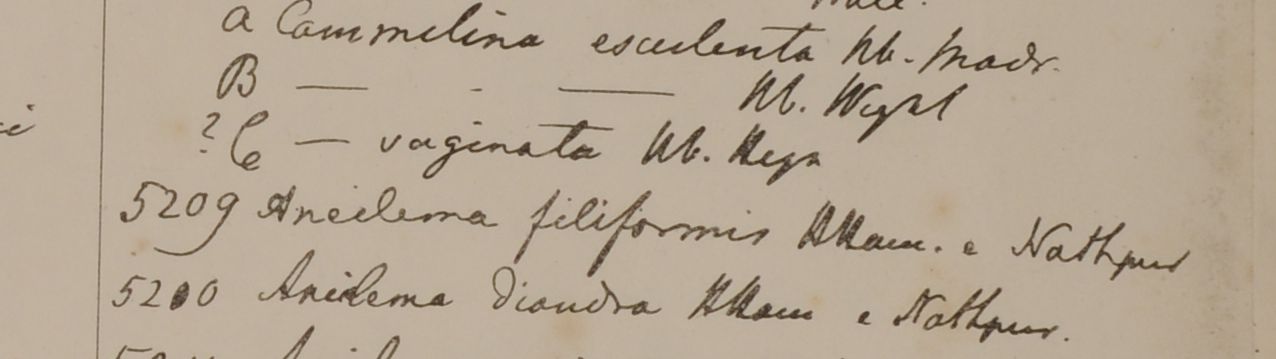 a Commelina esculenta Hb. Madr.
B — - — Hb. Wight
? C — vaginata Hb. Heyn
5209 Aneilema filiformis HHam. e Nathpur
5200 Aneilema diandra HHam e Nathpur.